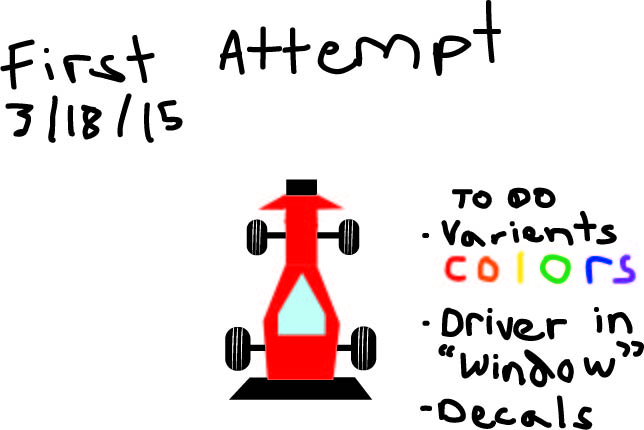 First Attempt
3/18/15
TO DO
· Varients
colors
· Driver in
"Window"
-Decals